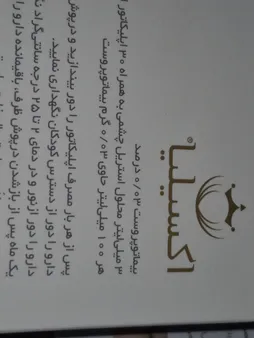 اکسیلیا®
بیماتوپروست ۰/۰۳ درصد
۳ میلی‌لیتر محلول استریل چشمی به همراه ۳۰ اپلیکاتور
هر ۱۰۰ میلی‌لیتر حاوی ۰/۰۳ گرم بیماتوپروست
پس از هر بار مصرف اپلیکاتور را دور بیندازید و درپوش
دارو را دور از دسترس کودکان نگهداری نمایید.
دارو را دور از نور و در دمای ۲ تا ۲۵ درجه سانتی‌گراد
یک ماه پس از باز شدن درپوش ظرف، باقیمانده دارو را